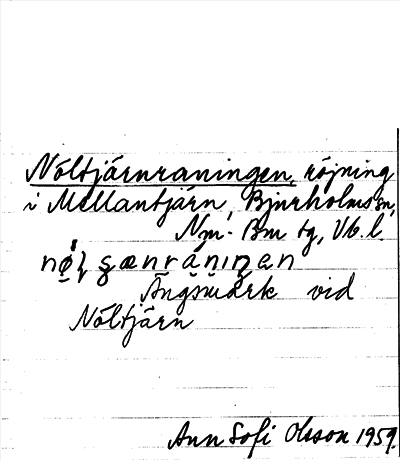 Nöltjärnraningen, röjning
i Mellantjärn, Bjurholms sn,
Nm- Bm tg, Vb. l.
nø̣̀l ʂænrániŋen
Ängsmark vid
Nöltjärn
Ann Sofi Olsson 1959.